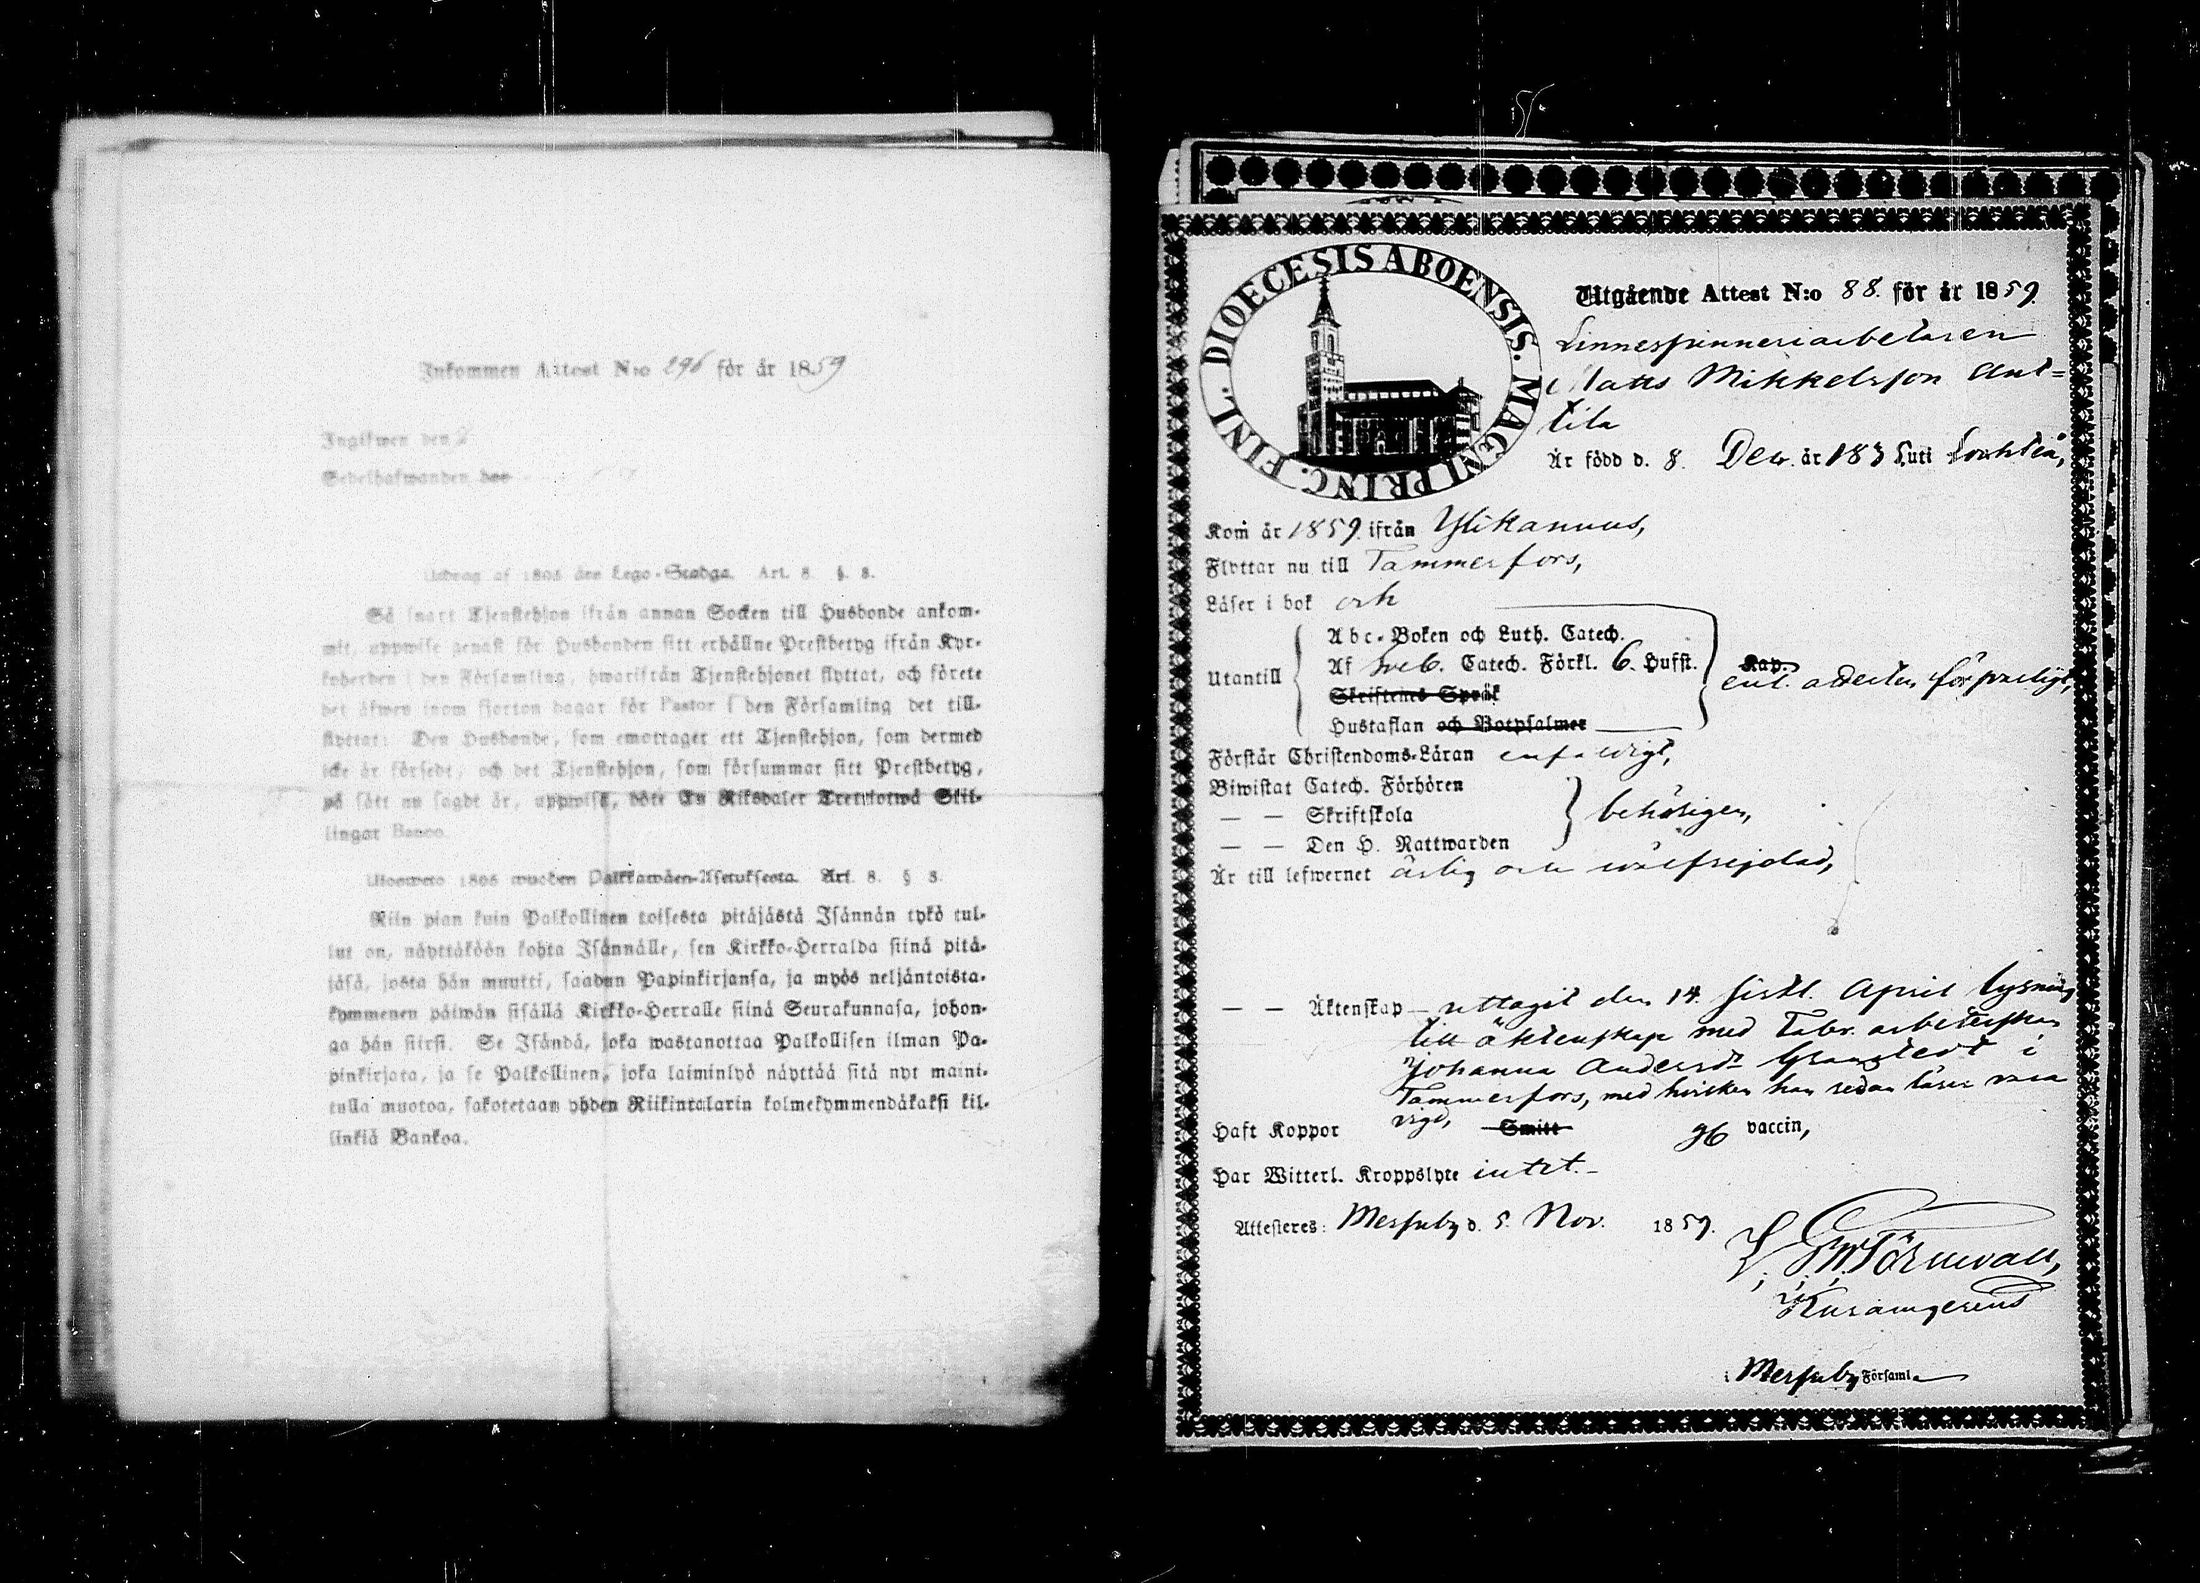 Inkommen Attest N:o 296 för år 1859
Ingifwen den 2
Sedelhafwanden bor
Utdrag af 1805 års Lego-Stadga. Art. 8. §. 8.
Så snart Tjenstehjon ifrån annan Socken till Husbonde ankom-
mit, uppwise genast för Husbonden sitt erhållne Prestbetyg ifrån Kyr-
koherden i den Församling, hwarifrån Tjenstehjonet flyttat, och förete
det äfwen inom fjorton dagar för Pastor i den Församling det till-
flyttat: Den Husbonde, som emottager ett Tjenstehjon, som dermed
icke är försedt, och det Tjenstehjon, som försummar sitt Prestbetyg,
på sätt nu sagdt är, uppwisa, böte En Riksdaler Trettiotwå Skil-
lingar Banco.
Ulosweto 1805 wuoden Palkkawäen-Asetuksesta. Art. 8. § 8.
Niin pian kuin Palkollinen toisesta pitäjästä Isännän tykö tul-
lut on, näyttäköön kohta Isännälle, sen Kirkko-Herralda siinä pitä-
jäsä, josta hän muutti, saadun Papinkirjansa, ja myös neljäntoista-
kymmenen päiwän sisällä Kirkko-Herralle siinä Seurakunnasa, johon-
ga hän siirsi. Se Isändä, joka wastanottaa Palkollisen ilman Pa-
pinkirjata, ja se Palkollinen, joka laiminlyö näyttää sitä nyt maini-
tulla muotoa, sakotetaan yhden Riikintalarin kolmekymmendäkaksi kil-
linkiä Bankoa.
DIOECESIS ABOENSIS. MAGNI PRINC. FINL.
Utgående Attest N:o 88. för år 1859.
Linnespinneriarbetaren
Matts Mikkelsson Ant=
tila
Är född d. 8. Dec. år 183 uti Lochteå,
Kom år 1859. ifrån Ylikannus,
Flyttar nu till Tammerfors,
Läser i bok och
Utantill
Abc-Boken och Luth. Catech.
Af Sveb. Catech. Förkl. 6. Hufst. Kap.
enl. attesten försvarligt,
Skriftenes Språk
Hustaflan och Botpsalmer
Förstår Christendoms-Läran enfaldigt,
Biwistat Catech. Förhören
— — Skriftskola behörigen,
— — Den H. Nattwarden
Är till lefwernet ärlig och wälfrejdad,
— — Äktenskap – uttagit den 14. sistl. April lysning
till äktenskap med Fabr. arbeterskan
Johanna Andersdr Granstedt i
Tammerfors, med hvilken han sedan låtit
vigd,
Haft Koppor Smitt vaccin,
Har Witterl. Kroppslyte intet. –
Attesteres: Messuby d. 5. Nov. 1859.
Törnwall,
i Messuby Församl.